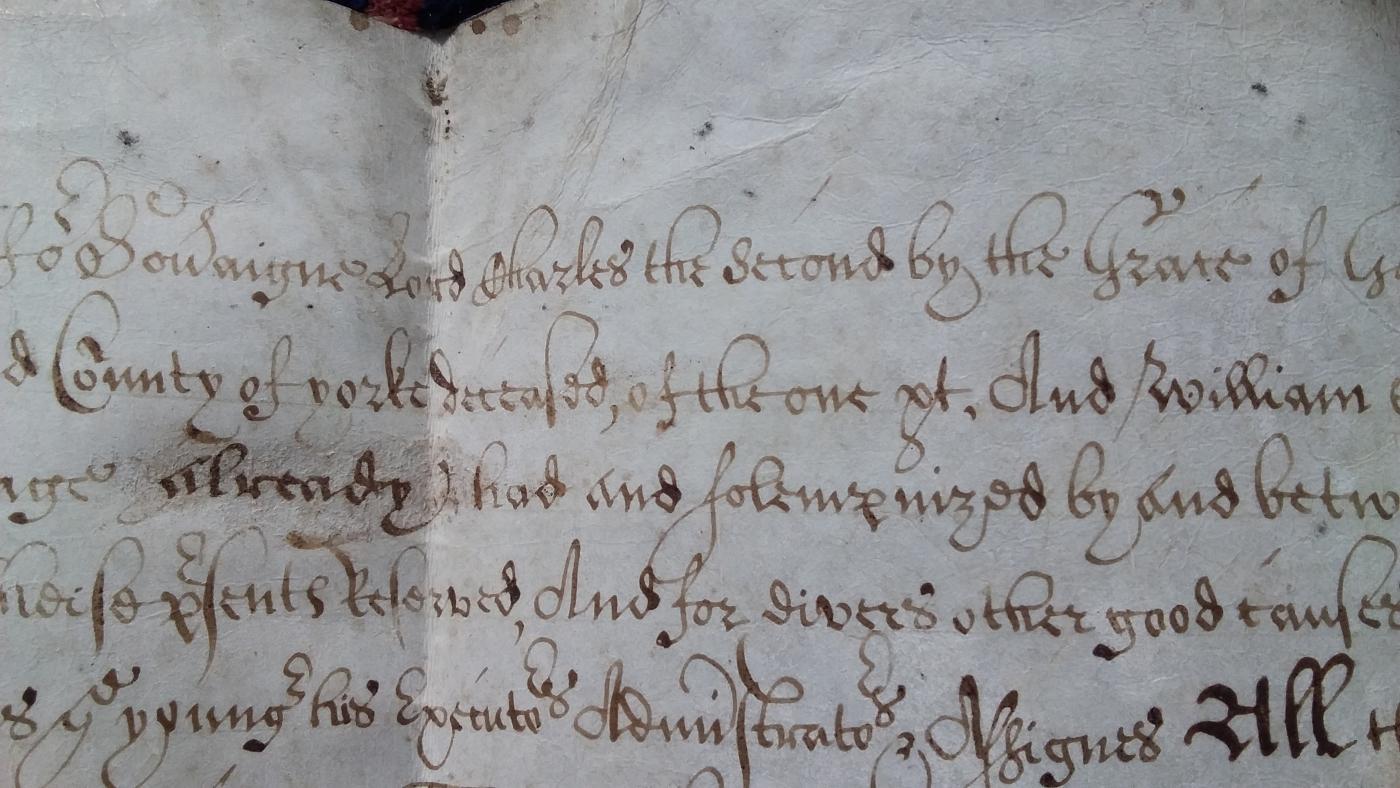 Sov'aigne Lord Charles the Second by the Grace of
County of yorke deceased, of the one pt, And William
age already had and solempnized by and betw
p'sents Reserved, And for divers other good causes
ye young'r his Executo'rs Administrato'rs & Assignes All t